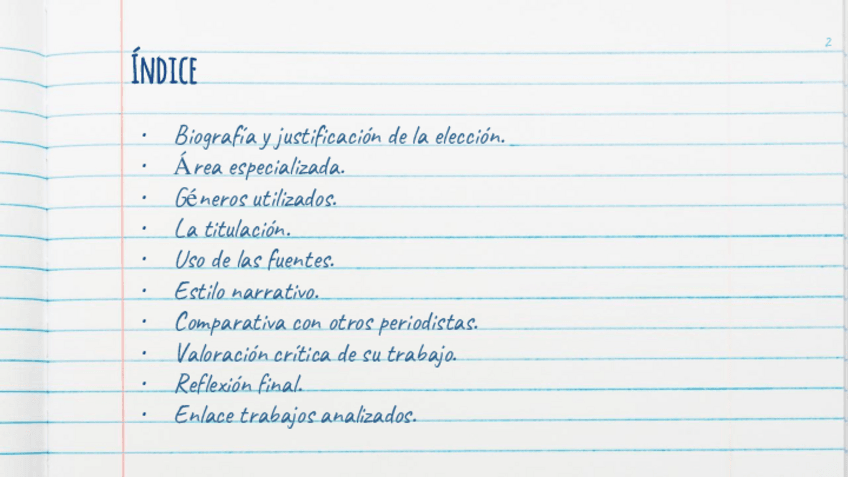 2
ÍNDICE
· Biografía y justificación de la elección.
· Área especializada.
· Géneros utilizados.
· La titulación.
· Uso de las fuentes.
· Estilo narrativo.
· Comparativa con otros periodistas.
· Valoración crítica de su trabajo.
· Reflexión final.
· Enlace trabajos analizados.